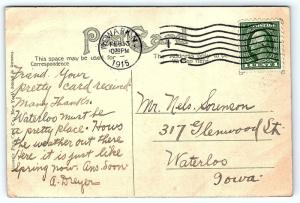 Post Card
NEWARK, N.J.
FEB
1915
This space may be used for
Correspondence
Friend. Your
pretty card received
Many Thanks.
Waterloo must be
a pretty place. Hows
the weather out there
Here it is just like
spring now. Ans. Soon
A. Dreyer
1 CENT 1
Mr. Nels. Sorenson
317 Glenwood St
Waterloo
Iowa.